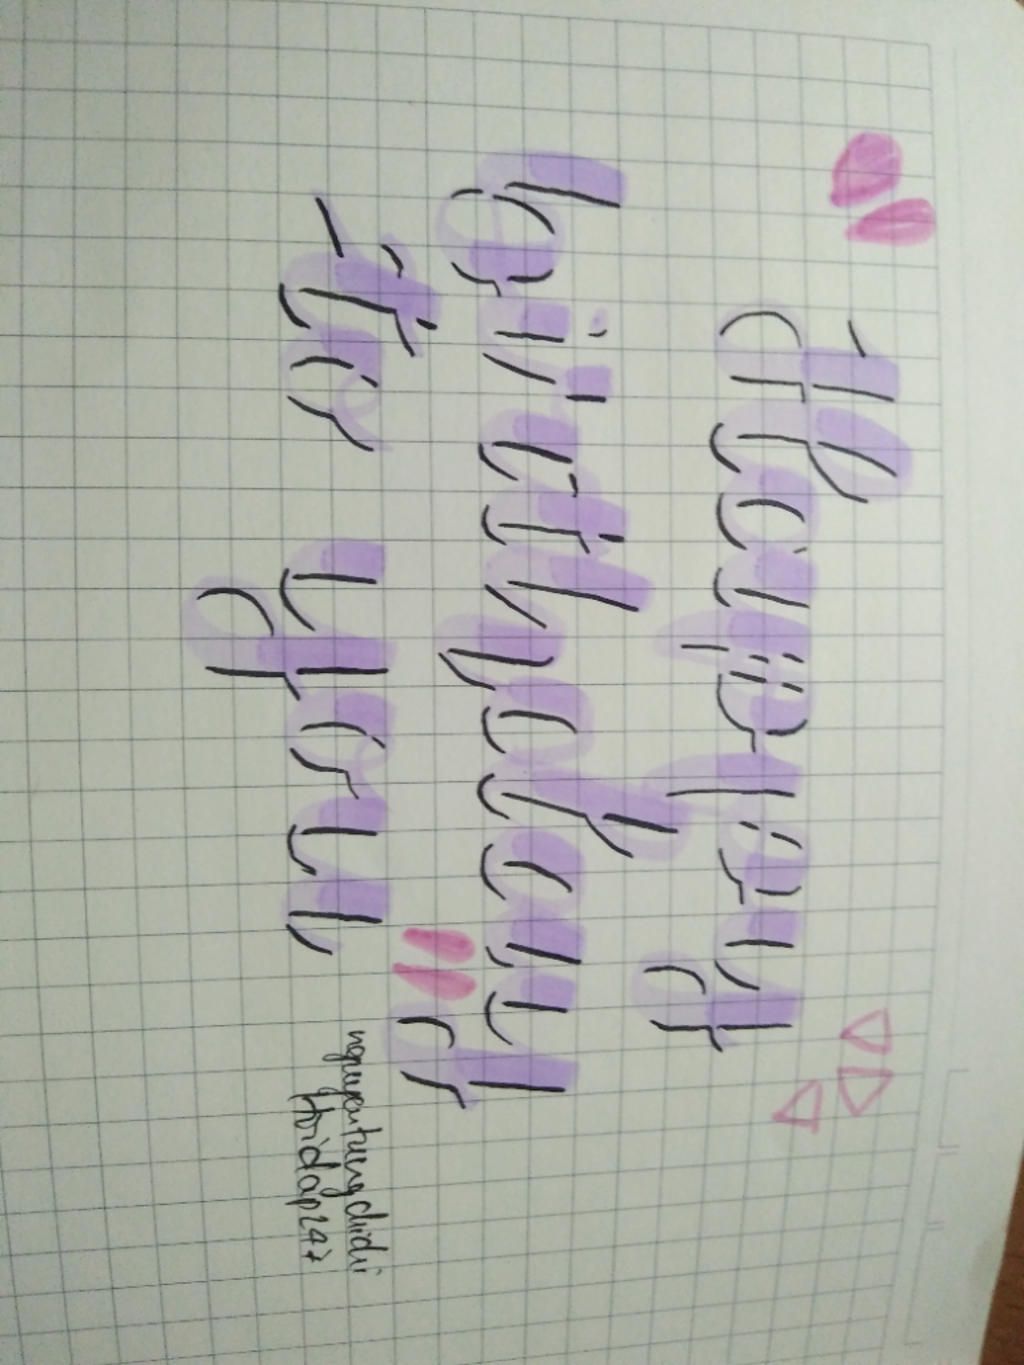 Happy
birthday
to you
nguyentrungchidii
Hoidap247